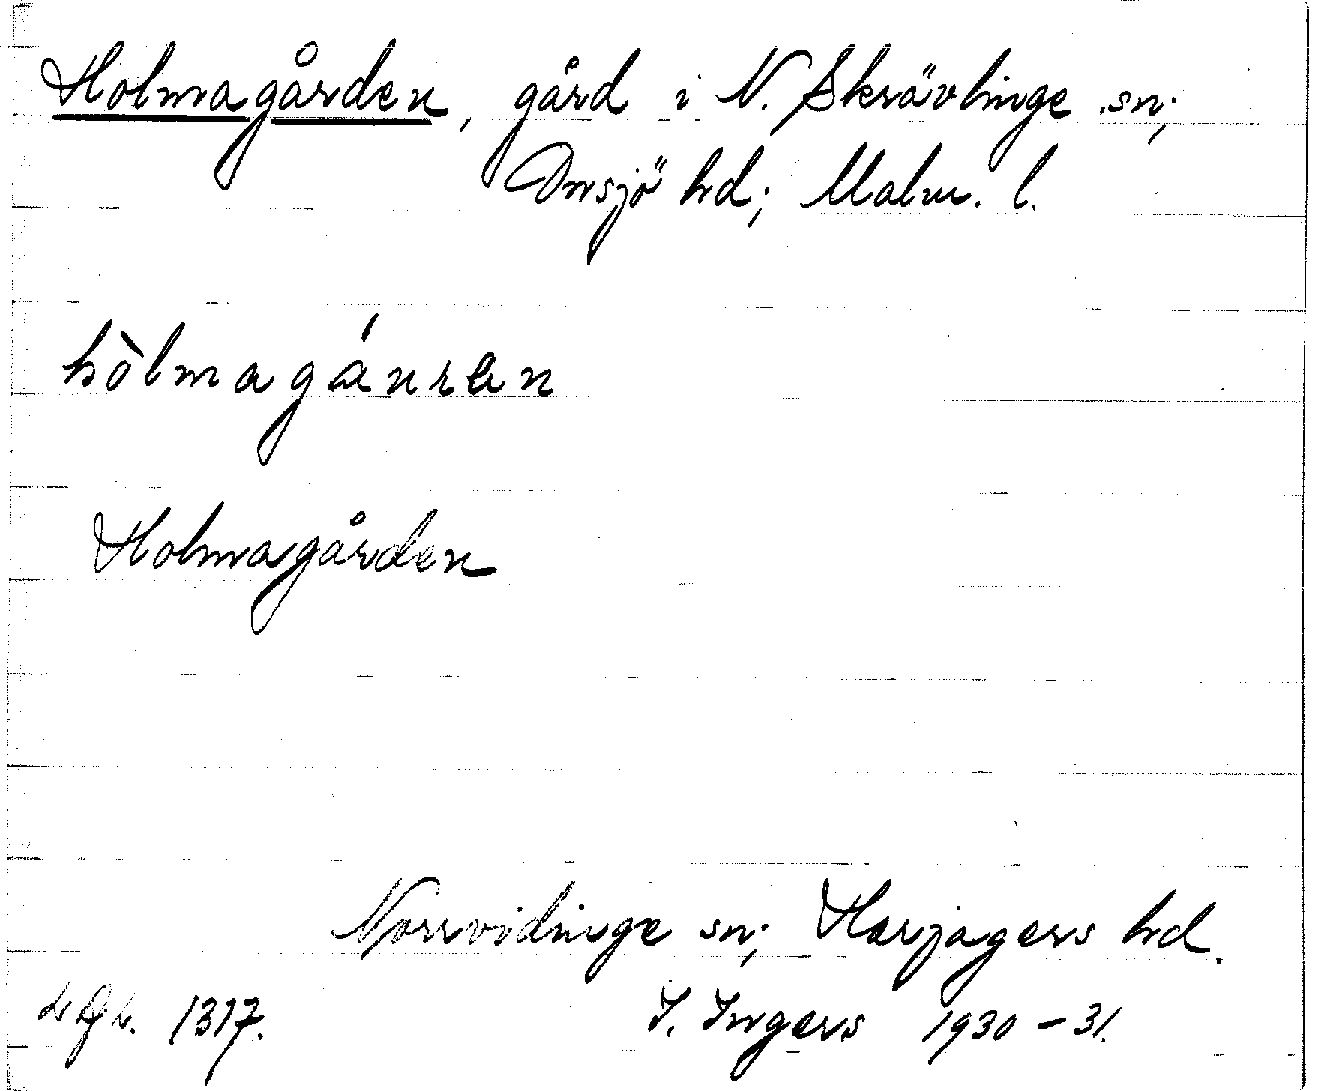 Holmagården, gård i N. Skrävlinge sn;
Onsjö hd; Malm. l.
hòlmagánrən
Holmagården
Norrvidinge sn; Harjagers hd.
1317. I. Ingers 1930-31.